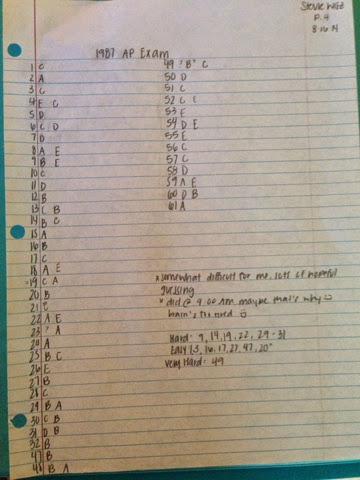 Stevie
P. 4
8-16-14
1987 AP Exam
1 C
2 A
3 C
4 E C
5 D
6 C D
7 D
8 A E
9 B E
10 C
11 D
12 B
13 C B
14 B C
15 A
16 B
17 C
18 A E
19 C A
20 B
21 E
22 A E
23 ? A
24 A
25 B C
26 E
27 B
28 C
29 B A
30 C B
31 D B
32 B
47 B
48 B A
49 ? "B" C
50 D
51 C
52 C E
53 E
54 D E
55 E
56 C
57 C
58 D
59 A E
60 D B
61 A
* somewhat difficult for me, lots of hopeful
guessing
* did @ 9:00 AM maybe that's why
brain's
Hard: 9, 14, 19, 22, 29-31
Easy 1, 3, 16, 17, 27, 47, 20
very Hard: 49